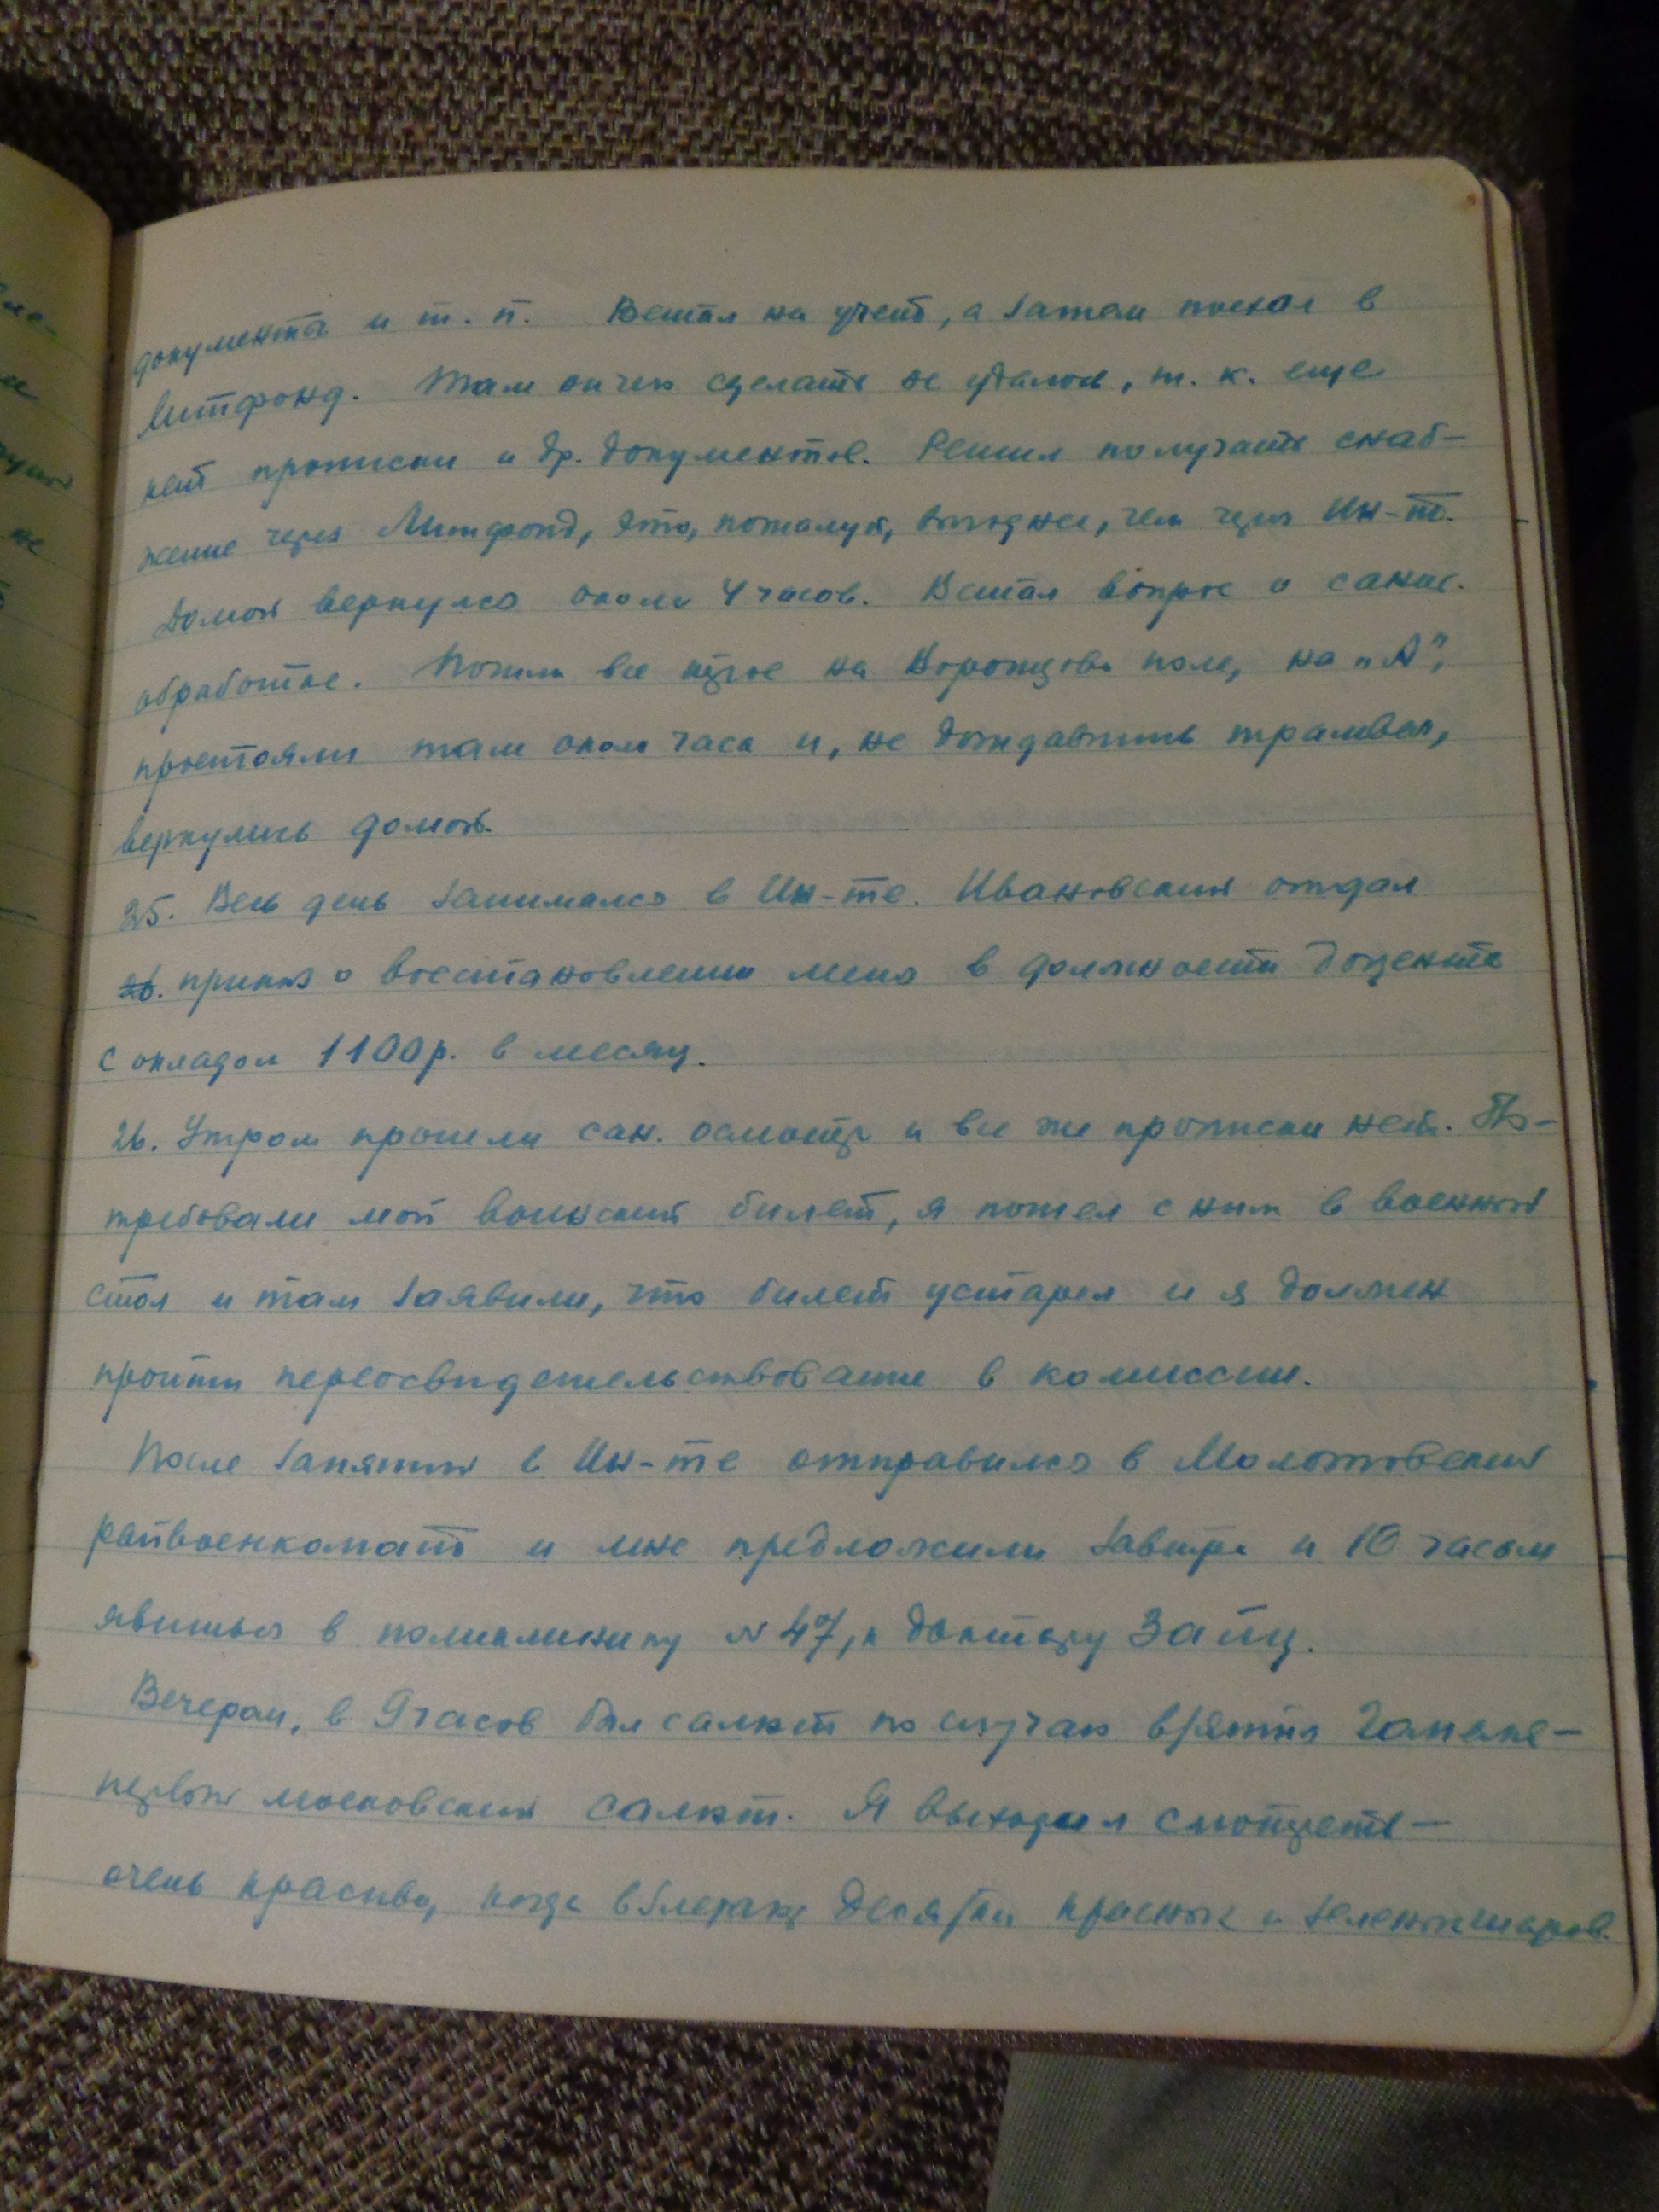 документа и т. п. Встал на учет, а затем поехал в
Литфонд. Там ничего сделать не удалось, т. к. еще
нет прописки и др. документов. Решил получать снаб-
жение через Литфонд, это, пожалуй, выгоднее, чем через Ин-т.
Домой вернулся около 4 часов. Встал вопрос о санит.
обработке. Пошли все трое на Воронцово поле, на „А",
простояли там около часа и, не дождавшись трамвая,
вернулись домой.
25. Весь день занимался в Ин-те. Ивановский отдал
приказ о восстановлении меня в должности доцента
с окладом 1100 р. в месяц.
26. Утром прошли сан. осмотр и все же прописки нет. По-
требовали мой воинский билет, я пошел с ним в военный
стол и там заявили, что билет устарел и я должен
пройти переосвидетельствование в комиссии.
После занятий в Ин-те отправился в Молотовский
райвоенкомат и мне предложили завтра к 10 часам
явиться в поликлинику № 47, к доктору Зайц.
Вечером, в 9 часов был салют по случаю взятия
первый московский салют. Я выходил смотреть —
очень красиво, когда взлетают десятки красных и зеленых шаров.